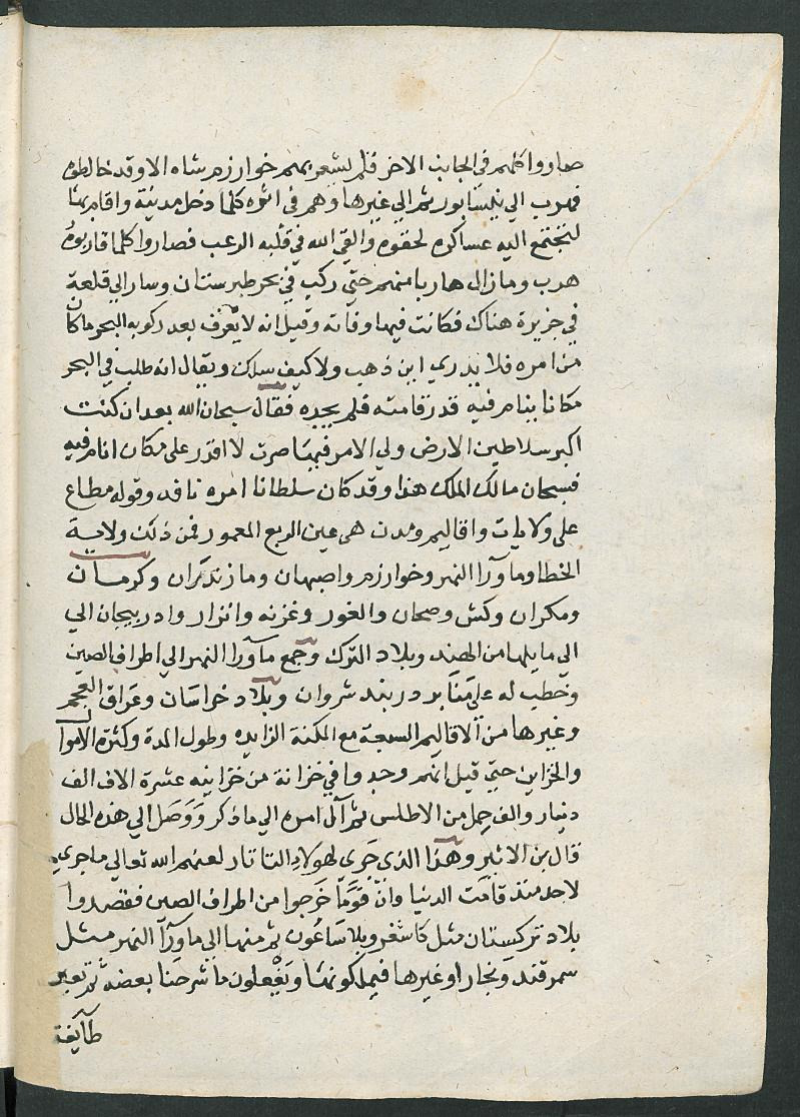 صاروا كلهم في الجانب الاخر فلم يشعر بهم خوارزم شاه الا وقد خالطوه
فهرب الي نيسابور ثم الي غيرها وهم في اثره كلما دخل مدينة واقام بها
لتجتمع اليه عساكره لحقوه والقي الله في قلبه الرعب فصاروا كلما قاربوه
هرب وما زال هاربا منهم حتي ركب في بحر طبرستان وسار الي قلعة
في جزيرة هناك فكانت فيها وفاته وقيل انه لا يعرف بعد ركوبه البحر ما كان
من امره فلا يدري اين ذهب ولا كيف سلك ويقال انه طلب في البحر
مكانا ينام فيه قدر قامته فلم يجده فقال سبحان الله بعد ان كنت
اكبر سلاطين الارض ولي الامر فيها صرت لا اقدر علي مكان انام فيه
فسبحان مالك الملك هذا وقد كان سلطانا امره نافد وقوله مطاع
على ولايات واقاليم ومدن هي عين الربع المعمور فمن ذلك ولاية
الخطا وما ورآ النهر وخوارزم واصبهان ومازندران وكرمان
ومكران وكش وصحان والغور وغزنه وانزار وادربيجان الي
الي ما يليها من الهند وبلاد الترك وجمع ما ورآ النهر الي اطراف الصين
وخطب له علي منابر دربند شروان وبلاد خراسان وعراق العجم
وغيرها من الاقاليم السبعة مع المكنة الزايده وطول المدة وكثرة الاموال
والخزاين حتي قيل انهم وجدوا في خزانة من خزاينه عشرة الاف الف
دينار والف حمل من الاطلس ثم آل امره الي ما ذكر ووصل الي هذه الحال
قال بن الاثير وهذا الذي جري لهولاء التاتار لعنهم الله تعالي ما جري
لاحد منذ قامت الدنيا وان قوما خرجوا من اطراف الصين فقصدوا
بلاد تركستان مثل كاشغر وبلاساغون ثم منها الي ما ورآ النهر مثل
سمرقند وبخارا وغيرها فيملكونها ويفعلون ما شرحنا بعضه ثم تعبر
طآيفة